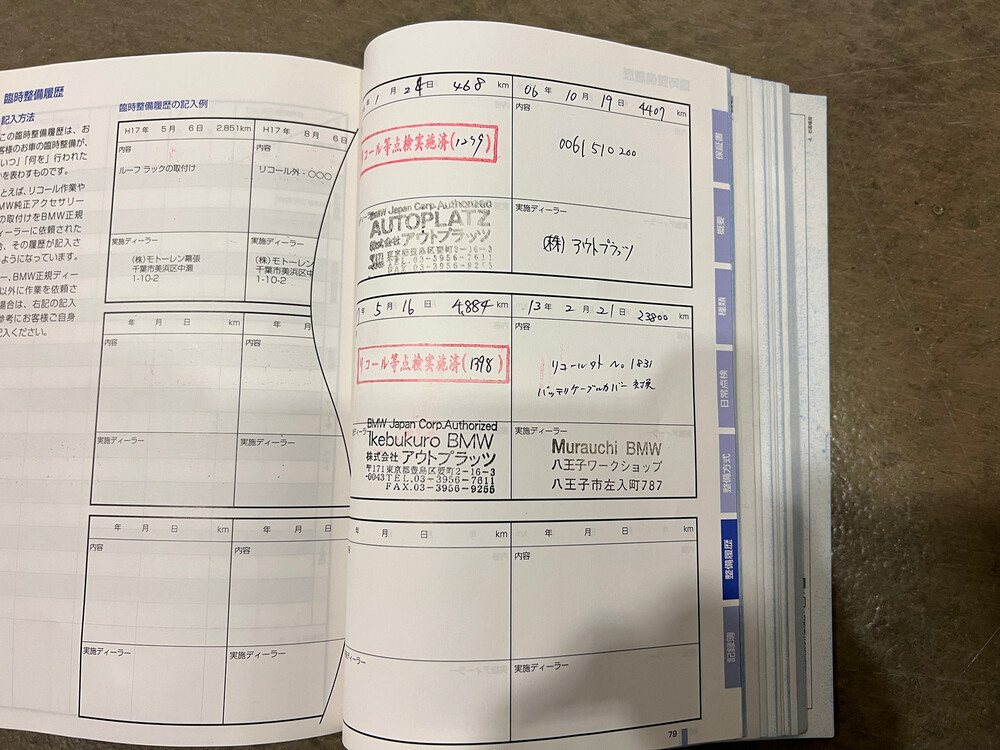 臨時整備履歴
記入方法
この臨時整備履歴は、お
客様のお車の臨時整備が、
いつ」「何を」行われた
かを表わすものです。
とえば、リコール作業や
MW純正アクセサリー
の取付けをBMW正規
ィーラーに依頼された
合、その履歴が記入さ
るようになっています。
ー、BMW正規ディー
以外に作業を依頼さ
場合は、右記の記入
参考にお客様ご自身
記入ください。
臨時整備履歴の記入例
H17年 5月 6日 2,851km
H17年 8月 6日
内容
ルーフ ラックの取付け
内容
リコール外・○○○
実施ディーラー
(株)モトーレン幕張
千葉市美浜区中瀬
1-10-2
実施ディーラー
(株)モトーレン
千葉市美浜区中
1-10-2
年 月 日 km
年 月
内容
内容
実施ディーラー
実施ディーラー
年 月 日 km
年 月 日
内容
内容
実施ディーラー
実施ディーラー
年 1 月 24 日 468 km
06 年 10 月 19 日 4407 km
コール等点検実施済(1259)
内容
0061510200
BMW Japan Corp.Authorized
AUTOPLATZ
株式会社 アウトプラッツ
東京都豊島区要町2-16-3
TEL.03-3956-7611
FAX.03-3956-9255
実施ディーラー
(株) アウトプラッツ
年 5 月 16 日 4,884 km
13 年 2 月 21 日 23800 km
リコール等点検実施済(1398)
内容
リコール外 No.1831
バッテリケーブルカバー 対策
BMW Japan Corp.Authorized
Ikebukuro BMW
株式会社 アウトプラッツ
〒171東京都豊島区要町2-16-3
-0043TEL.03-3956-7611
FAX.03-3956-9255
実施ディーラー
Murauchi BMW
八王子ワークショップ
八王子市左入町787
年 月 日 km
年 月 日 km
内容
実施ディーラー
実施ディーラー
79
保証書
概要
種類
日常点検
整備方式
整備履歴
記録簿